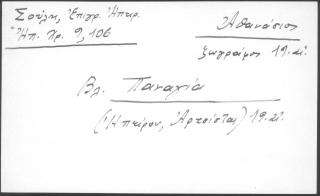 Σούλη, Ἐπιγρ. Ἠπειρ.
Ἠπ. Χρ. 9, 106
Ἀθανάσιος
ζωγράφος 19. αἰ.
Βλ. Παναγία
(Ἠπείρου, Ἀρτοίστας) 19. αἰ.